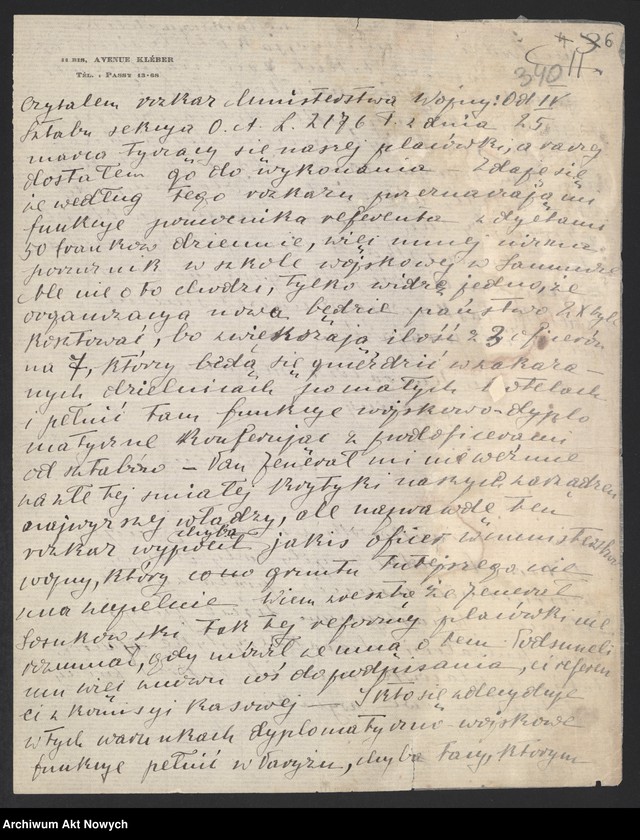 11 BIS, AVENUE KLÉBER
TÉL. : PASSY 13-68
4 26
340 II.
Czytałem rozkaz Ministerstwa Wojny: Od IV
Sztabu sekcya O. A. L. 2176 z dnia 25
marca tyczący się naszej placówki, a raczej
dostałem go do wykonania – Zdaje się
że według tego rozkazu przeznaczają mi
funkcje pomocnika referenta z dyetami
50 franków dziennie, więc mniej niż ma
porucznik w szkole wojskowej w Saumur
Ale nie o to chodzi, tylko widzę jedno, że
organizacya nowa będzie państwo 2x tyle
kosztować, bo zwiększają ilość z 3 oficerów
na 7, którzy będą się gnieździć w zakaza-
nych dzielnicach po małych hotelach
i pełnić tam funkcje wojskowo-dyplo
matyczne konferując z podoficerami
od sztabów – Pan Jenerał mi nie weźmie
za złe tej śmiałej krytyki naszych zarządzeń
najwyższej władzy, ale naprawdę ten
rozkaz wypocił chyba jakiś oficer w ministerstwie
wojny, który gruntu tutejszego nie
zna zupełnie Wiem zresztą że Jenerał
Sosnkowski tak tej reformy placówki nie
rozumiał, gdy mówił ze mną o tem Podsunęli
mu więc znowu coś do podpisania, ci referen
ci z komisyi kasowej – I kto się zdecyduje
w tych warunkach dyplomatyczno-wojskowe
funkcje pełnić w Paryżu, chyba tacy, którym
Archiwum Akt Nowych